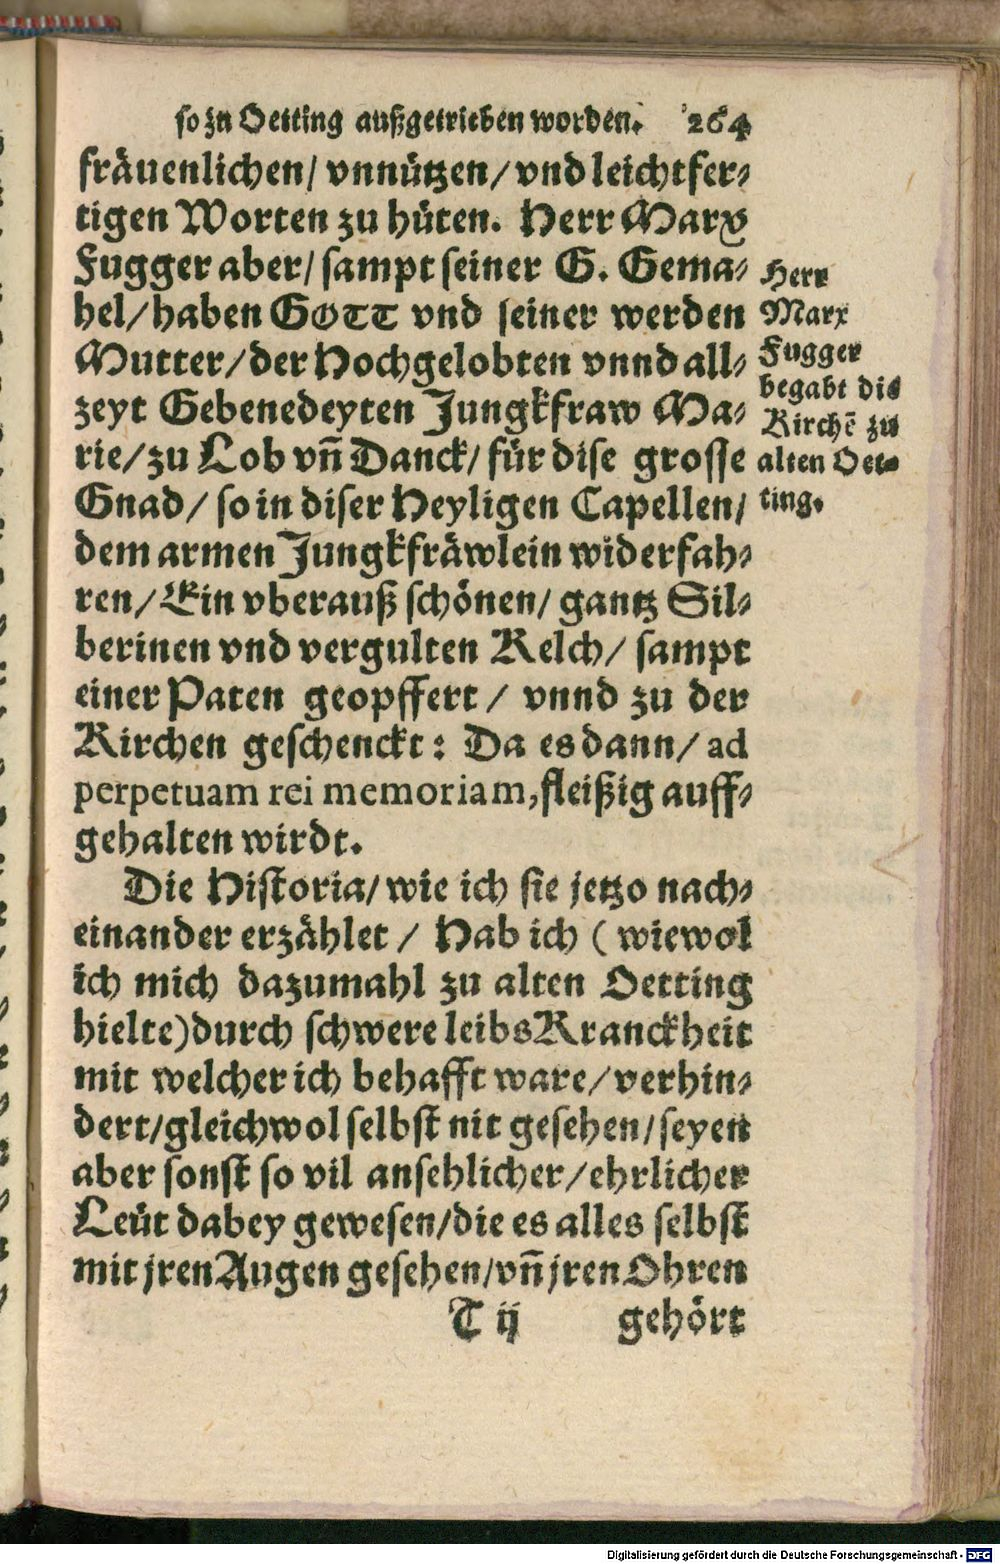 so zu Oetting außgetrieben worden. 264
fräuenlichen/ vnnützen/ vnd leichtfer-
tigen Worten zu hüten. Herr Marx
Fugger aber/ sampt seiner G. Gema-
hel/ haben GOTT vnd seiner werden
Mutter/ der Hochgelobten vnnd all-
zeyt Gebenedeyten Jungkfraw Ma-
rie/ zu Lob vñ Danck/ für dise grosse
Gnad/ so in diser Heyligen Capellen/
dem armen Jungkfräwlein widerfah-
ren/ Ein vberauß schönen/ gantz Sil-
berinen vnd vergulten Kelch/ sampt
einer Paten geopffert/ vnnd zu der
Kirchen geschenckt: Da es dann/ ad
perpetuam rei memoriam, fleißig auff-
gehalten wirdt.
Herr
Marx
Fugger
begabt die
Kirchē zu
alten Oet-
ting.
Die Historia/ wie ich sie jetzo nach-
einander erzählet/ Hab ich (wiewol
ich mich dazumahl zu alten Oetting
hielte) durch schwere leibs Kranckheit
mit welcher ich behafft ware/ verhin-
dert/ gleichwol selbst nit gesehen/ seyen
aber sonst so vil ansehlicher/ ehrlicher
Leüt dabey gewesen/ die es alles selbst
mit jren Augen gesehen/ vñ jren Ohren
T ij gehört
Digitalisierung gefördert durch die Deutsche Forschungsgemeinschaft - DFG